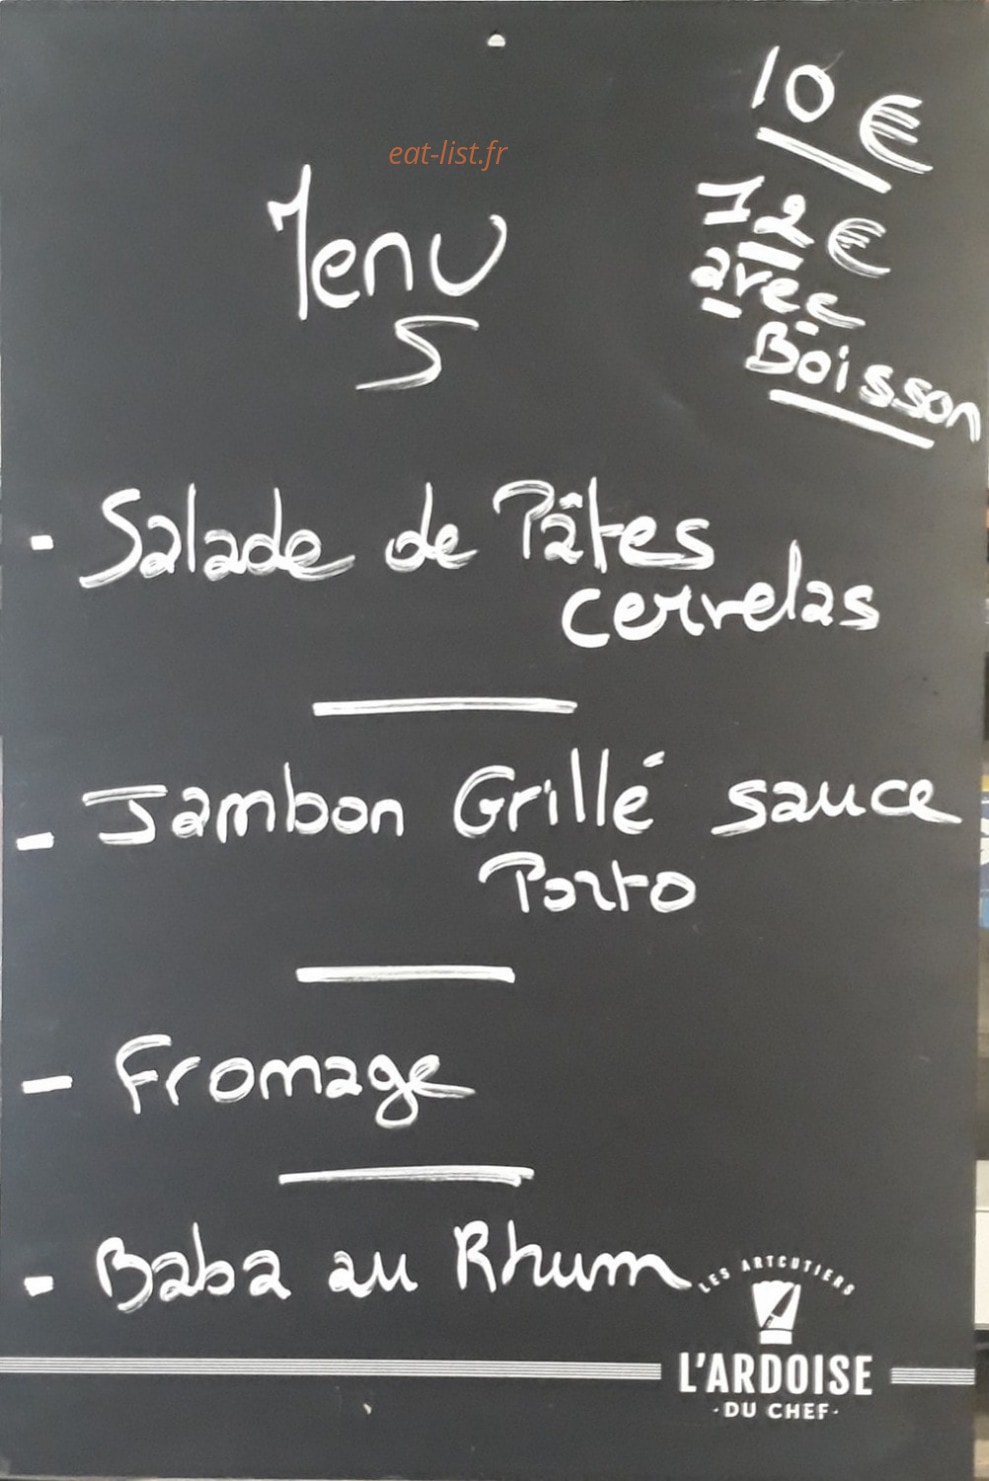 10 €
12 €
avec
Boisson
eat-list.fr
Menu
- Salade de Pâtes
cervelas
- Jambon Grillé sauce
Porto
- Fromage
- Baba au Rhum
LES ARTCUTIERS
L'ARDOISE
·DU CHEF·